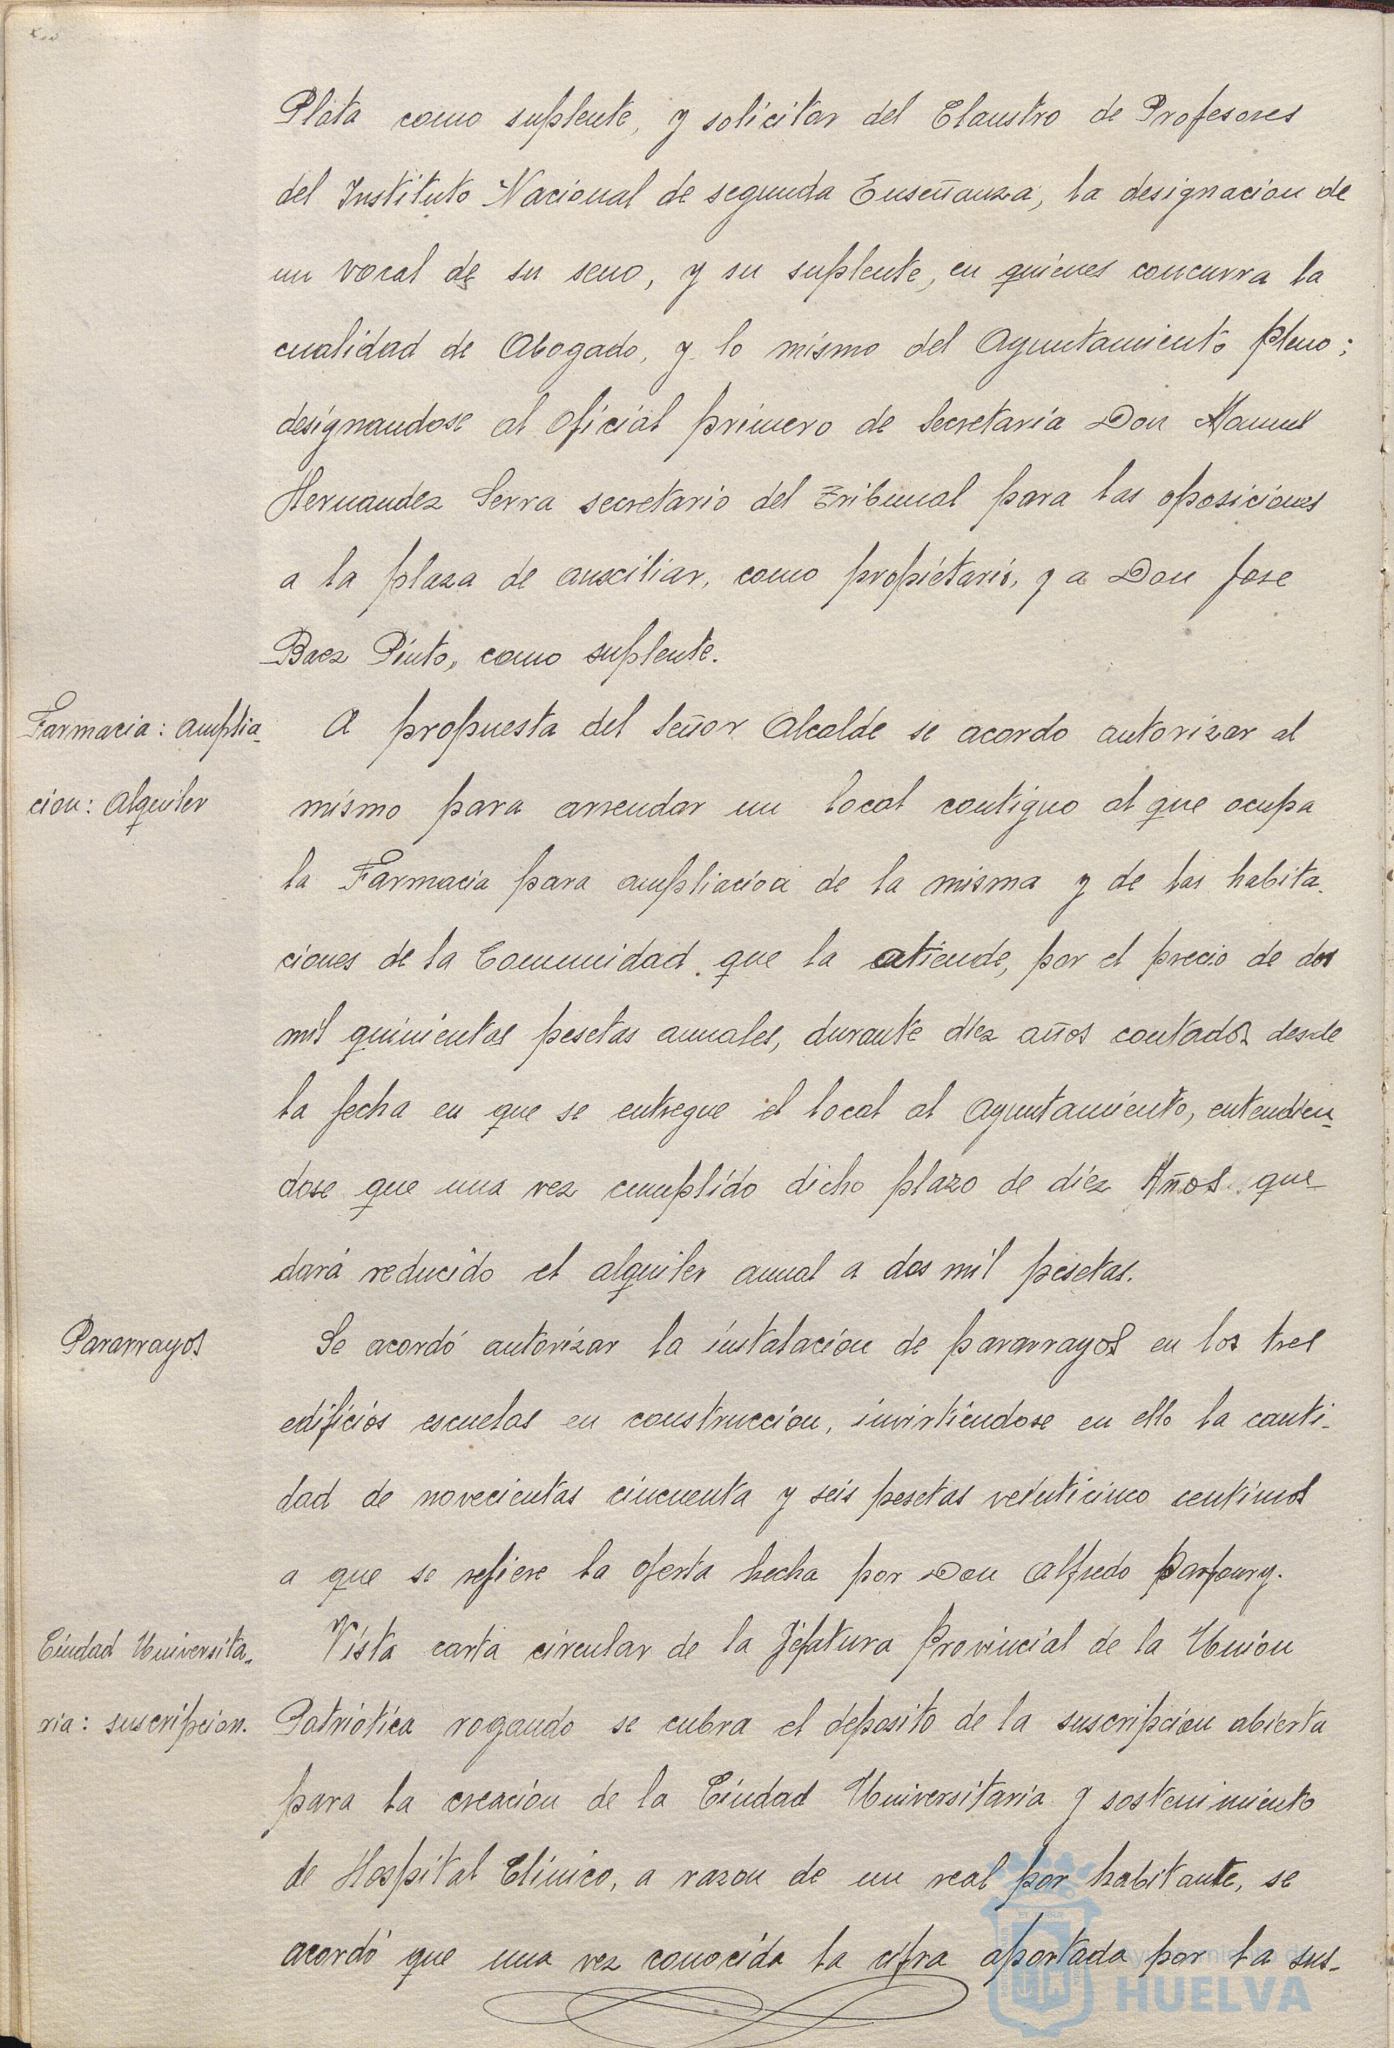 Plata como suplente, y solicitar del Claustro de Profesores
del Instituto Nacional de segunda Enseñanza, la designacion de
un vocal de su seno, y su suplente, en quienes concurra la
cualidad de Abogado, y lo mismo del Ayuntamiento pleno;
designandose al oficial primero de Secretaria Don Manuel
Hernandez Serra secretario del Tribunal para las oposiciones
a la plaza de auxiliar, como propietario, y a Don Jose
Baez Pinto, como suplente.
Farmacia: amplia-
cion: Alquiler
A propuesta del señor Alcalde se acordo autorizar al
mismo para arrendar un local contiguo al que ocupa
la Farmacia para ampliacion de la misma y de las habita-
ciones de la Comunidad que la atiende, por el precio de dos
mil quinientas pesetas anuales, durante diez años contados desde
la fecha en que se entregue el local al Ayuntamiento, entendien-
dose que una vez cumplido dicho plazo de diez Años que-
dará reducido el alquiler anual a dos mil pesetas.
Pararrayos
Se acordó autorizar la instalacion de pararrayos en los tres
edificios escuelas en construccion, invirtiendose en ello la canti-
dad de novecientas cincuenta y seis pesetas veinticinco centimos
a que se refiere la oferta hecha por Don Alfredo
Ciudad Universita-
ria: suscripcion.
Vista carta circular de la Jefatura Provincial de la Unión
Patriótica rogando se cubra el deposito de la suscripcion abierta
para la creación de la Ciudad Universitaria y sostenimiento
de Hospital Clinico, a razon de un real por habitante, se
acordó que una vez conocida la cifra aportada por la sus-
Ayuntamiento de
HUELVA